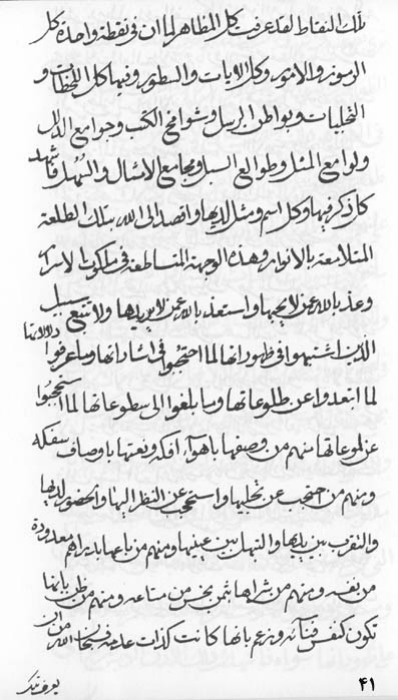 تلك النقاط لقد عرفت كل المظاهر لما ان فى نقطة واحدة كل
الرموز والامور وكل الايات والسطور وفيها كل اللحظات و
التجليات وبواطن الرسل وشوامخ الكتب وجوامع الدلال
ولوامع المثل وطوالع السبل ومجامع الامثال والنهل فاشهد
كل ذكر فيها وكل اسم ومثل لديها واقصد الى الله بتلك الطلعة
المتلامعة بالانوار وهذه الوجهة المتساطعة فى ملكوت الاسرار
وعذ بالله عن لا يحبها واستعذ بالله عن لا يريدها ولا تتبع سبيل
الذين اشتبهوا فى ظهوراتها لما احتجبوا فى اشاراتها وما عرفوا دلالاتها
لما ابتعدوا عن طلوعاتها وما بلغوا الى سطوعاتها لما استحجبوا
عن لموعاتها منهم من وصفها باهواء افكه ونعتها باوصاف سفكه
ومنهم من احتجب عن تجليها واستحجب عن النظر اليها والحضور لديها
والتقرب بين يديها والنهل بين عينيها ومنهم من باعها بدراهم معدودة
من نفسه ومنهم من شراها بثمن بخس من متاعه ومنهم من ظن بانها
تكون كنفس فنائه وزعم بانها كانت كذات عدمه فسبحان الله من ان
يعرف تلك
۴۱